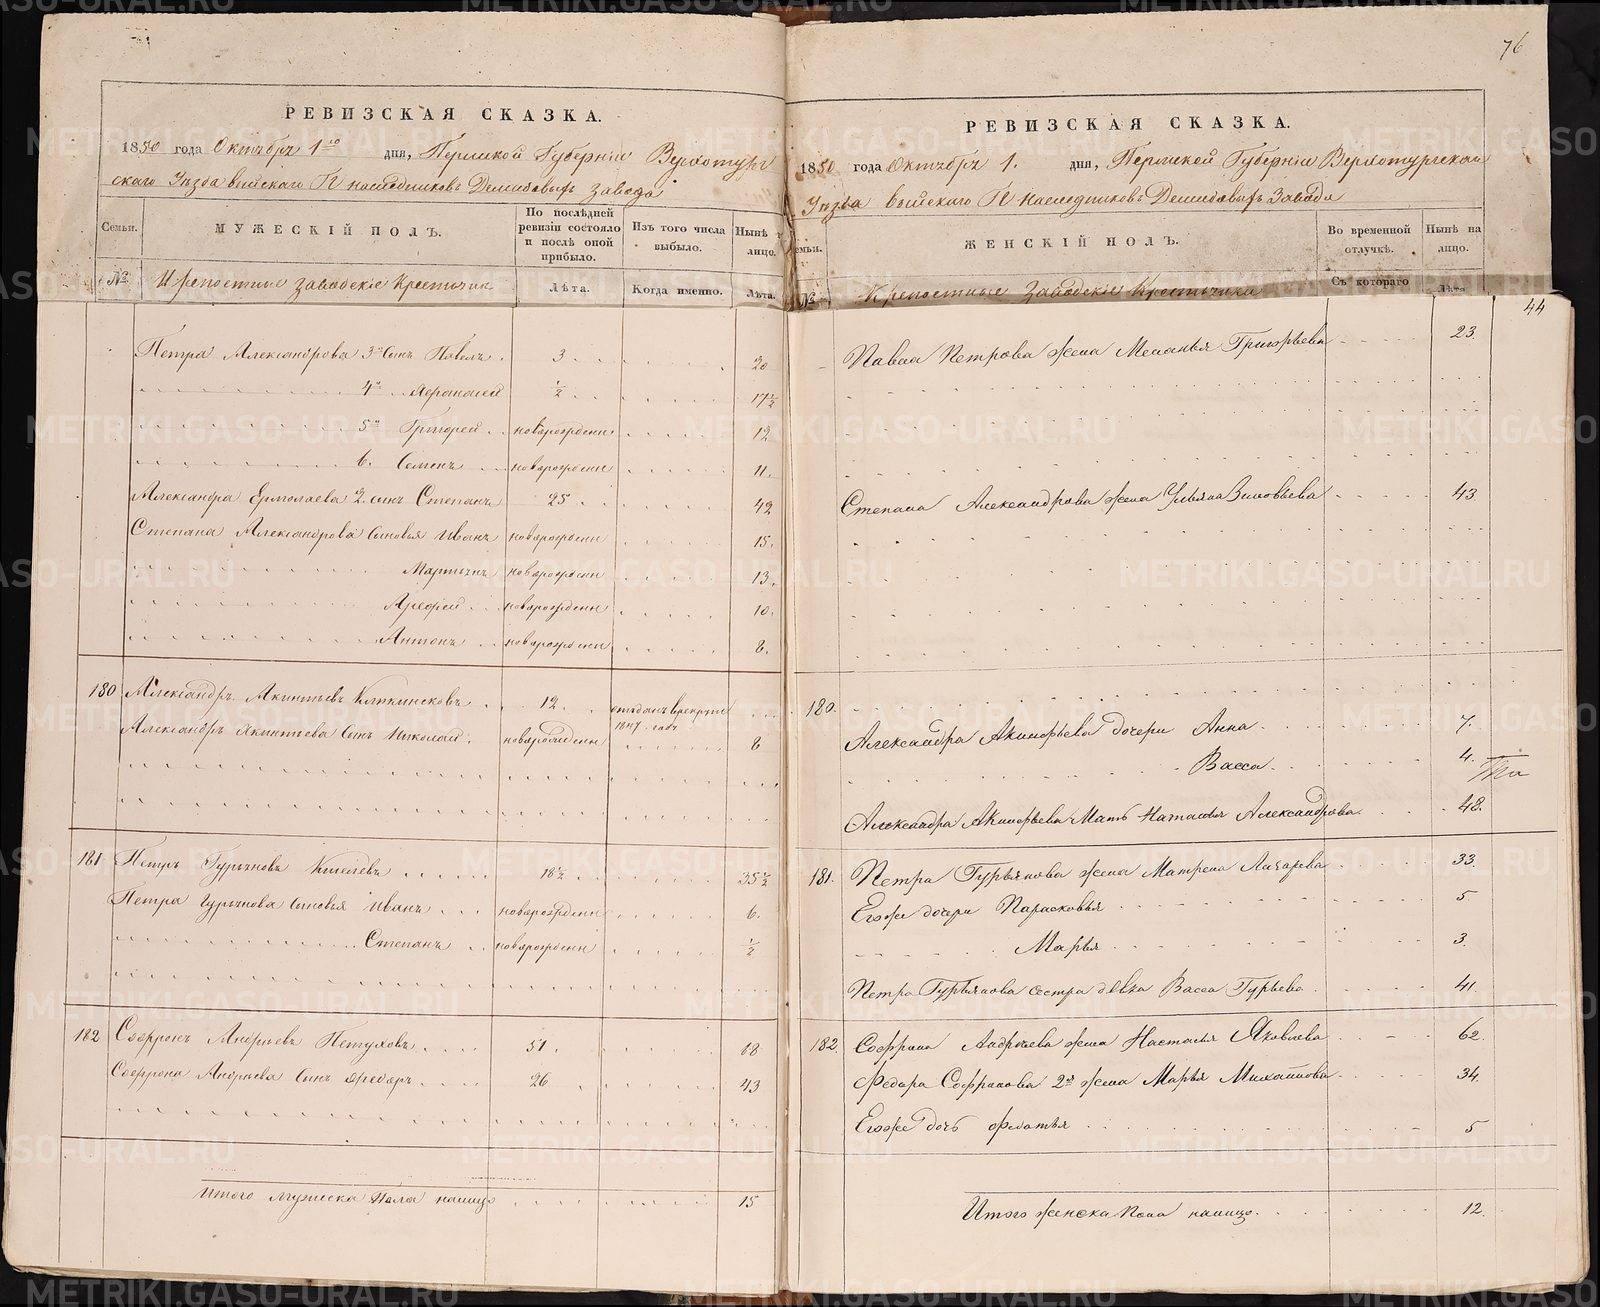 76
РЕВИЗСКАЯ СКАЗКА.
1850 года Октября 1го дня, Пермской Губернiи Верхотур
скаго Уѣзда выйскаго Гг наследниковъ Демидовыхъ завода
Семьи. МУЖЕСКIЙ ПОЛЪ. По послѣдней ревизiи состояло и послѣ оной прибыло. Изъ того числа выбыло. Нынѣ на лицо.
№ Крепостные заводскiе Крестьяне Лѣта. Когда именно. Лѣта.
Петра Александрова 3й сынъ Павелъ 3 20
4й Афонасей ½ 17½
5й Григорей новорожденн 12
6. Семенъ новорожденн 11.
Александра Ермолаева 2й сынъ Степанъ 25 42
Степана Александрова сыновья Иванъ новорожденн 15.
Мартынъ новорожденн 13.
Арефей новорожденн 10.
Антонъ новорожденн 8.
180 Александръ Акинтьевъ 12 отданъ врекруты 1847 годъ
Александръ Акинтьева сынъ Николай новорожденн 8
181 Петръ Гурьяновъ Киселевъ 18½ 35½
Петра Гурьянова сыновья Иванъ новорожденн 6.
Степанъ новорожденн ½
182 Софронъ Андреевъ Петуховъ 51 68
Софрона Андреева сынъ Федоръ 26 43
Итого мужеска Пола налицо 15
РЕВИЗСКАЯ СКАЗКА.
1850 года Октября 1. дня, Пермской Губернiи Верхотурской
Уѣзда выйскаго Гг наследниковъ Демидовыхъ Завода
семьи. ЖЕНСКIЙ ПОЛЪ. Во временной отлучкѣ. Нынѣ на лицо.
№ Крепостные Заводскiе Крестьянки Съ котораго Лѣта
44
Павла Петрова жена Меланья Григорьева 23.
Степана Александрова жена Ульяна Зиновьева 43
180.
Александра Акинфьева дочери Анна 7.
Васса 4.
Александра Акинфьева Мать Наталья Александрова 48.
181. Петра Гурьянова жена Матрена Лазарева 33.
Егоже дочери Парасковья 5
Марья 3.
Петра Гурьянова сестра девка Васса Гурьева 41.
182. Софрона Андреева жена Настасья Яковлева 62.
Федора Софронова 2я жена Марья Михайлова 34.
Егоже дочь Феоктья 5
Итого женска Пола налицо 12.
METRIKI.GASO-URAL.RU